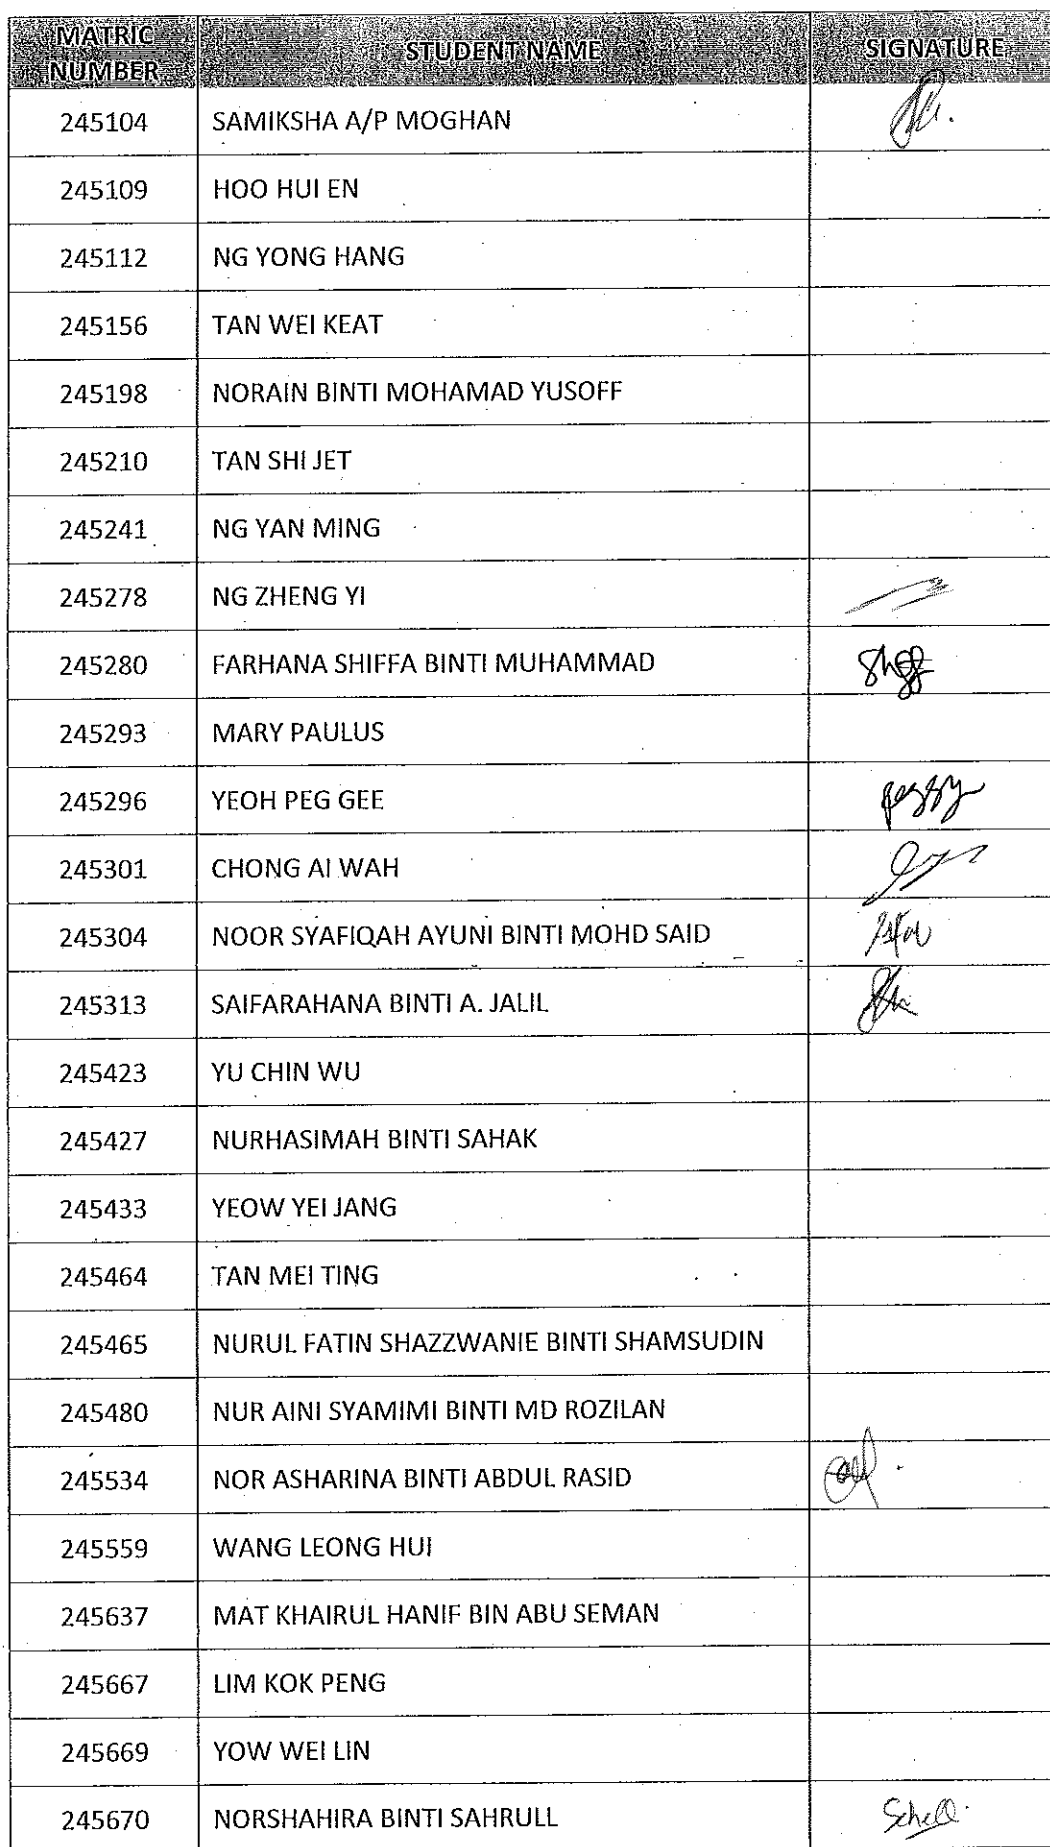 MATRIC NUMBER STUDENT NAME SIGNATURE
245104 SAMIKSHA A/P MOGHAN
245109 HOO HUI EN
245112 NG YONG HANG
245156 TAN WEI KEAT
245198 NORAIN BINTI MOHAMAD YUSOFF
245210 TAN SHI JET
245241 NG YAN MING
245278 NG ZHENG YI
245280 FARHANA SHIFFA BINTI MUHAMMAD
245293 MARY PAULUS
245296 YEOH PEG GEE peggy
245301 CHONG AI WAH
245304 NOOR SYAFIQAH AYUNI BINTI MOHD SAID
245313 SAIFARAHANA BINTI A. JALIL
245423 YU CHIN WU
245427 NURHASIMAH BINTI SAHAK
245433 YEOW YEI JANG
245464 TAN MEI TING
245465 NURUL FATIN SHAZZWANIE BINTI SHAMSUDIN
245480 NUR AINI SYAMIMI BINTI MD ROZILAN
245534 NOR ASHARINA BINTI ABDUL RASID
245559 WANG LEONG HUI
245637 MAT KHAIRUL HANIF BIN ABU SEMAN
245667 LIM KOK PENG
245669 YOW WEI LIN
245670 NORSHAHIRA BINTI SAHRULL